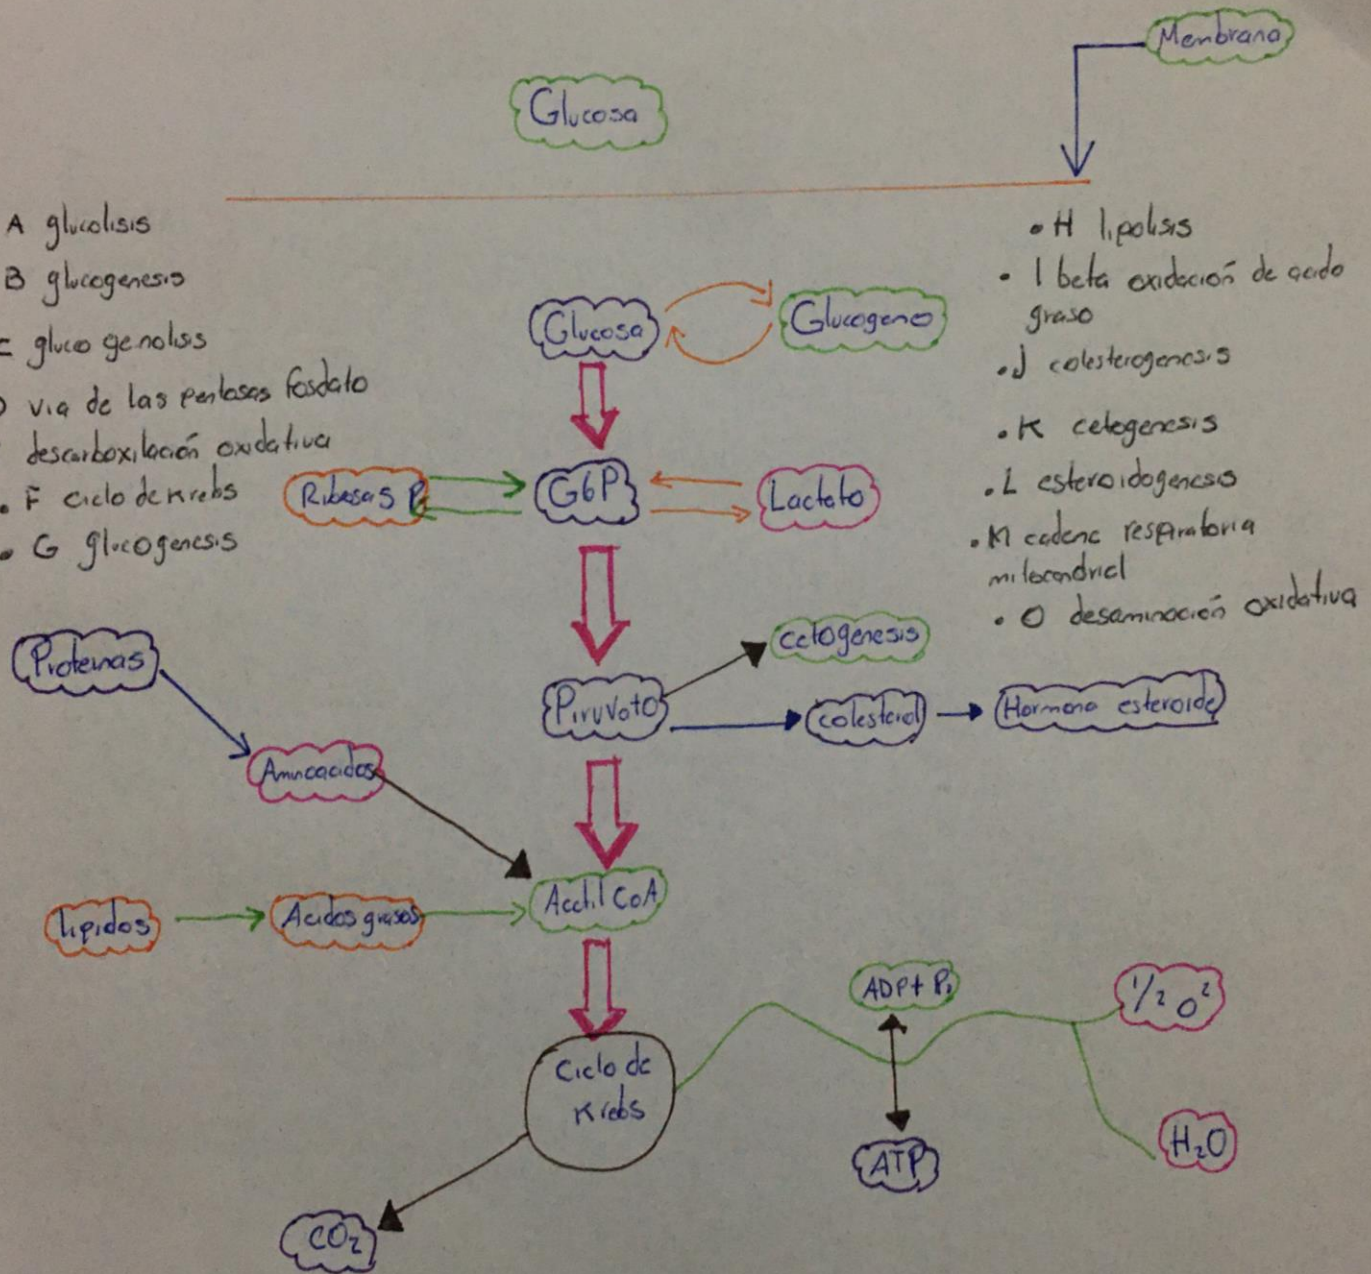 Membrana
Glucosa
A glucolisis
B glucogenesis
C gluco genolisis
D via de las pentosas fosdato
descarboxilación oxidativa
. F ciclo de Krebs
. G glucogenesis
• H lipolisis
• I beta oxidación de acido
graso
• J colesterogenesis
• K cetogenesis
• L esteroidogenesis
• M cadena respiratoria
mitocondrial
• O desaminación oxidativa
Glucosa
Glucogeno
Ribosas P
G6P
Lactato
Proteinas
cetogenesis
Piruvato
colesterol
Hormona esteroide
Aminoacidos
Acetil CoA
Lipidos
Acidos grasos
ADP + Pi
1/2 O²
Ciclo de
Krebs
ATP
H₂O
CO₂